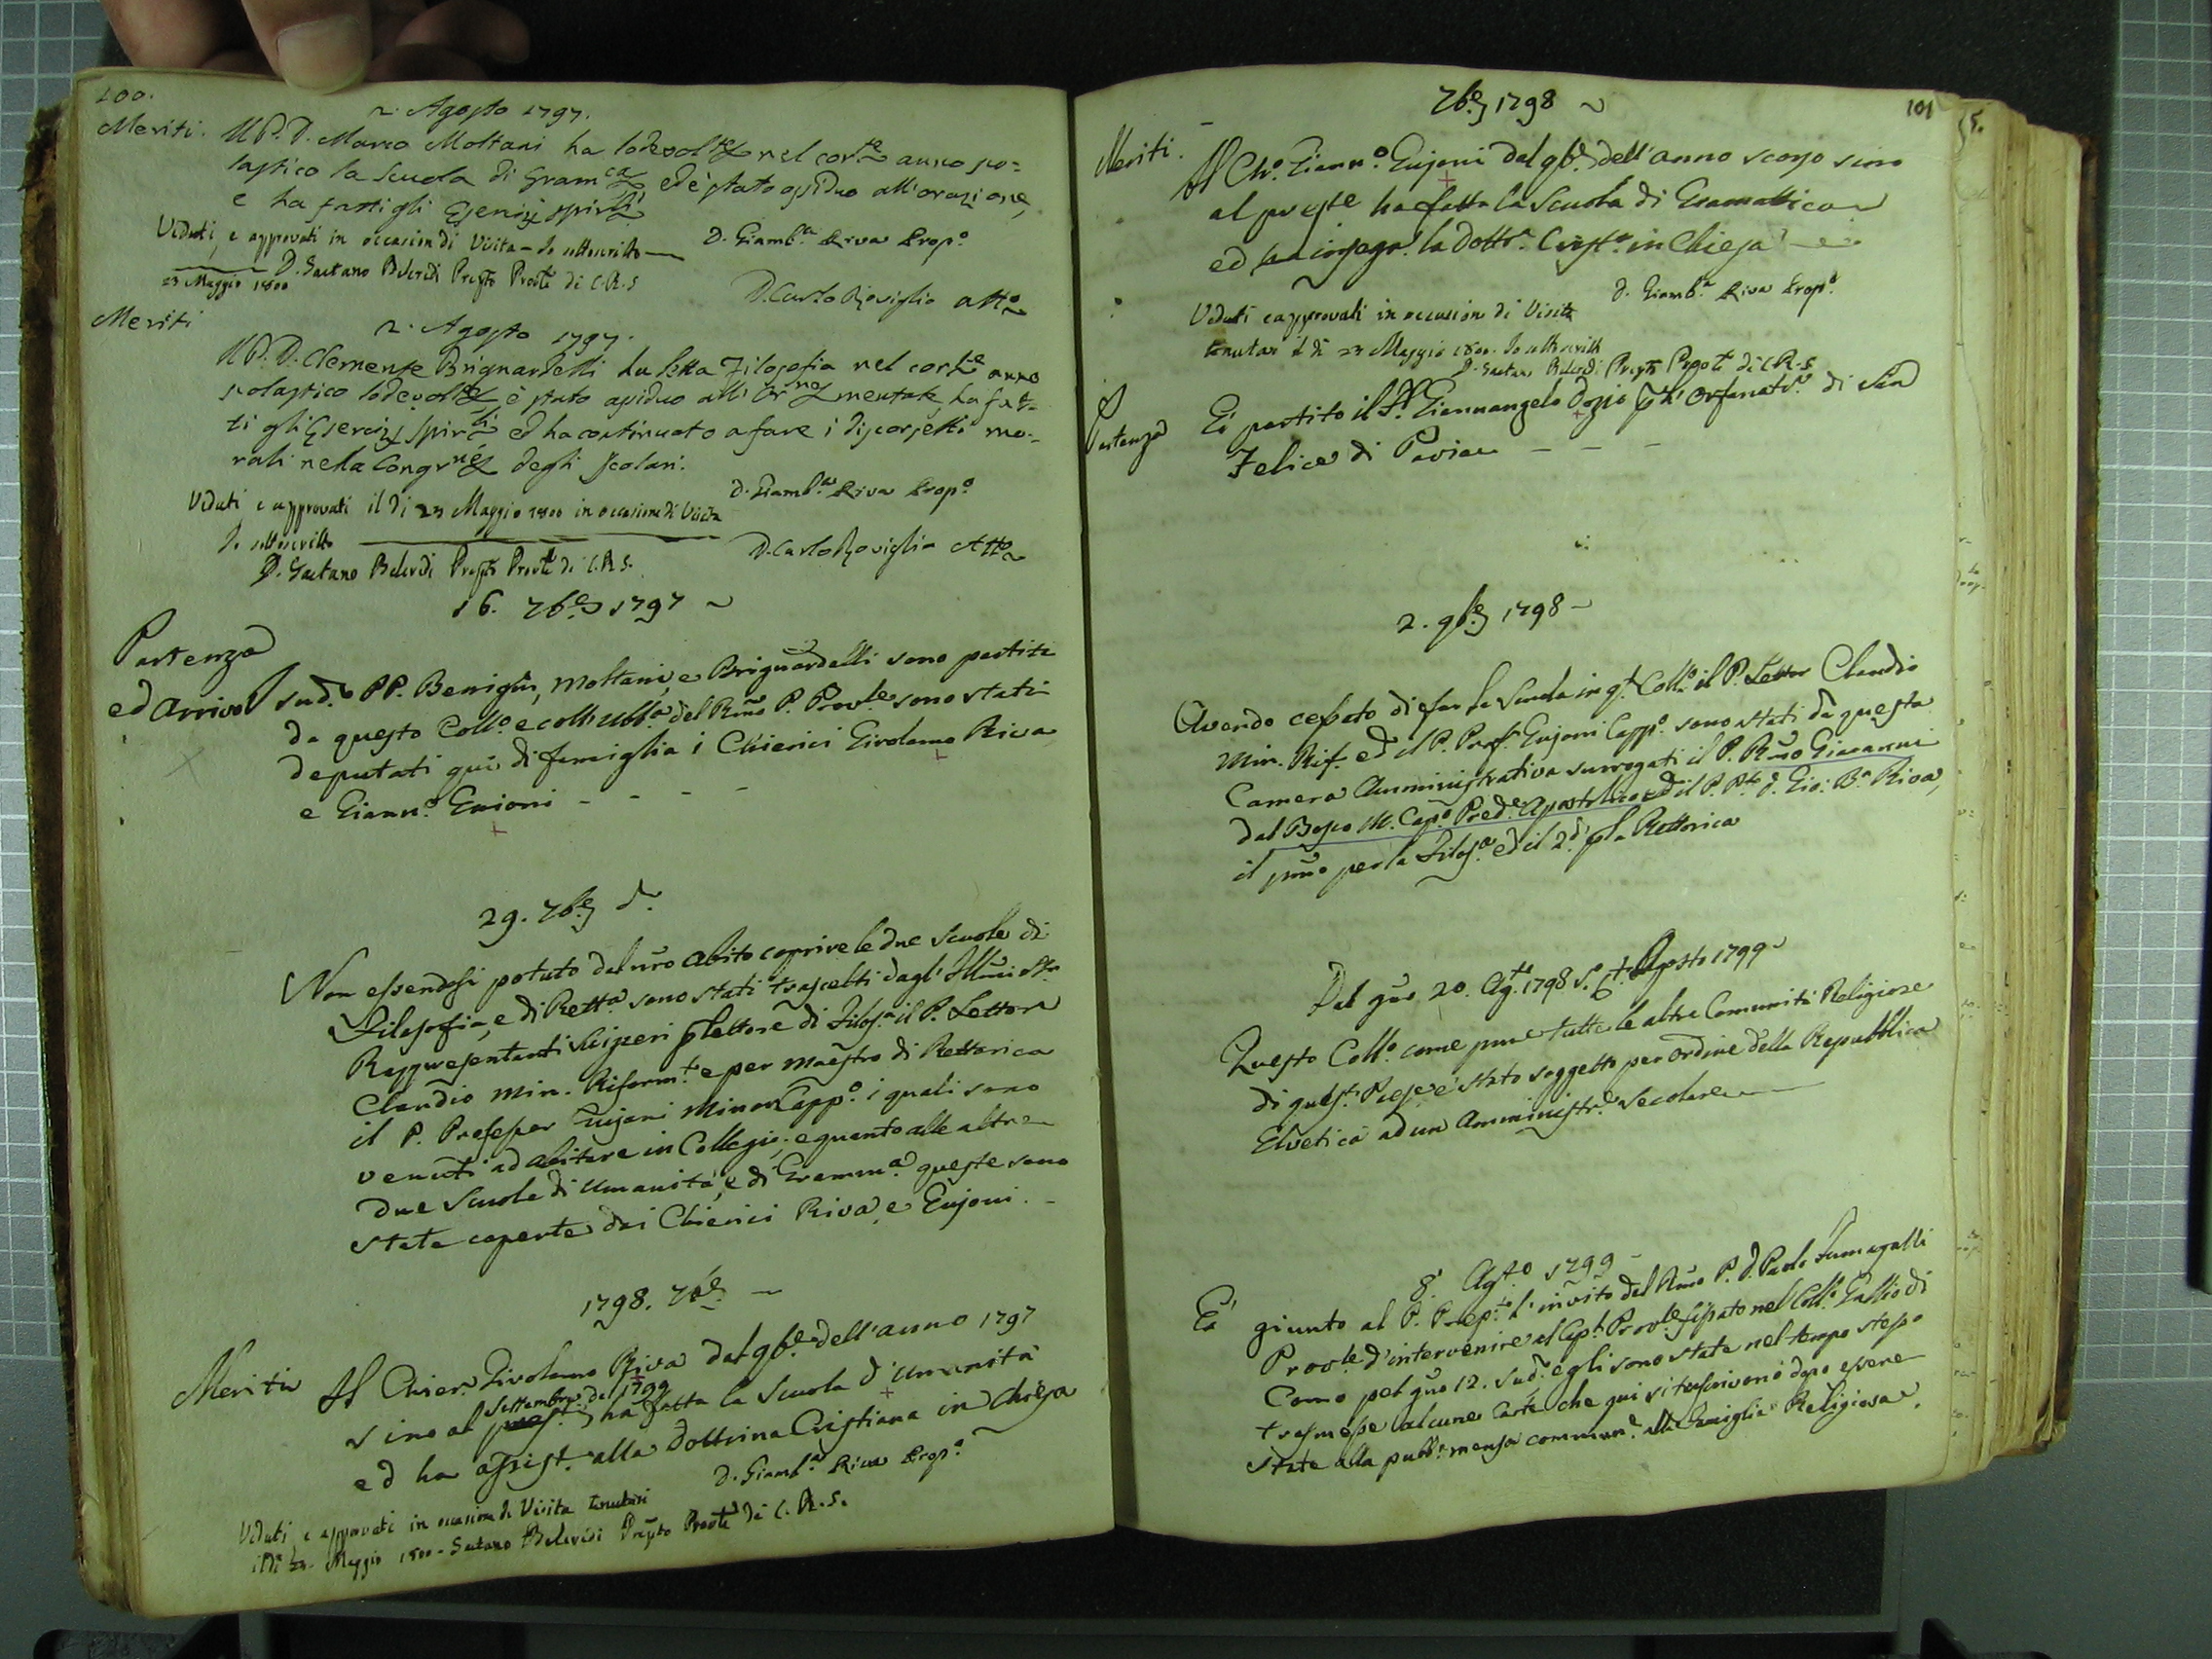 100.
2. Agosto 1797.
Meriti. Il P. D. Marco Moltani ha lodevolte nel corte anno sco=
lastico la Scuola di Gramca ed è stato assiduo all'orazione,
e ha fatti gli Esercizj spirli
Veduti, e approvati in occasion di Visita - Io sottoscritto
D. Giamb.a Riva Prop.o
23 Maggio 1800 D. Gaetano Belcredi Prepto Provle di C.R.S
D. Carlo Roviglio Atto
Meriti
2. Agosto 1797.
Il P. D. Clemente Brignardelli ha letta Filosofia nel corte anno
scolastico lodevolte, è stato assiduo all'Orne mentale, ha fat-
ti gli Esercizj Spirli ed ha continuato a fare i discorsetti mo-
rali nella Congrne degli Scolari.
Veduti e approvati il di 23 Maggio 1800 in occasione di Visita
D. Giamb.a Riva Prop.o
Io sottoscritto
D. Carlo Roviglio Atto
D. Gaetano Belcredi Prepto Provle di C.R.S.
16. 7bre 1797
Partenza
ed Arrivo I sud.i PP. Benigni, Moltani, e Brignardelli sono partiti
da questo Coll.o e coll'ubb.a del Rmo P. Prov.le sono stati
deputati quì di famiglia i Chierici Girolamo Riva
e Giann.o Gujoni - - - -
29. 7bre d.o
Non essendosi potuto dal nro Abito coprire le due Scuole di
Filosofia, e di Rett.a sono stati trascelti dagl'Illmi Sri
Rappresentanti Svizzeri p lettore di Filos.a il P. Lettore
Claudio Min. Riform.to e per Maestro di Rettorica
il P. Professor Gujoni Minor Capp.o i quali sono
venuti ad abitare in Collegio; e quanto alle altre
due Scuole di Umanità, e di Gramm.a queste sono
state coperte dai Chierici Riva, e Gujoni. -
1798. 7bre
Meriti Il Chier. Girolamo Riva dal 9bre dell'anno 1797
Settembre del 1799
sino al prest. ha fatta la Scuola d'Umanità
ed ha assist. alla Dottrina Cristiana in Chiesa
D. Giamb.a Riva Prop.o
Veduti, e approvati in occasion di Visita tenutasi
il di 23 Maggio 1800 - Gaetano Belcredi Prepto Provle di C.R.S.
101
7bre 1798
Meriti. Il Ch.o Giann.o Gujoni dal 9bre dell'anno scorso sino
al prste ha fatta la Scuola di Gramattica
ed ha insegn.o la Dottr.a Crist.a in Chiesa
D. Giamb.a Riva Prop.o
Veduti e approvati in occasion di Visita
tenutasi il di 23 Maggio 1800. Io sottoscritto
D. Gaetano Belcredi Prepto Provle di C.R.S
Partenza È partito il F. Giannangelo Dozio p l'Orfanatr.o di San
Felice di Pavia - - -
2. 9bre 1798 -
Avendo cessato di far la Scuola in q.to Coll.o il P. Lettor Claudio
Min. Rif. ed il P. Prof. Gujoni Capp.o sono stati da questa
Camera Amministrativa surrogati il P. Rmo Giovanni
dal Bosco M. Cap.o Pred.e Apostolico ed il P. P.to D. Gio: B.a Riva,
il pmo per la Filos.a ed il 2.do p la Rettorica
Dal gno 20. Ag.to 1798 s.o Agosto 1799
Questo Coll.o come pure tutte le altre Comunità Religiose
di quest.o Paese è stato soggetto per ordine della Repubblica
Elvetica ad un Amministr.e Secolare
8. Ag.to 1799 -
È giunto al P. Prep.to l'invito del Rmo P. D. Paolo Fumagalli
Provle d'intervenire al Cap.o Provle fissato nel Coll.o Gallio di
Como pel gno 12. sud. e gli sono state nel tempo stesso
trasmesse alcune Carte che qui si trascrivono dopo essere
state alla pubb.a mensa commun.e alla Famiglia Religiosa.